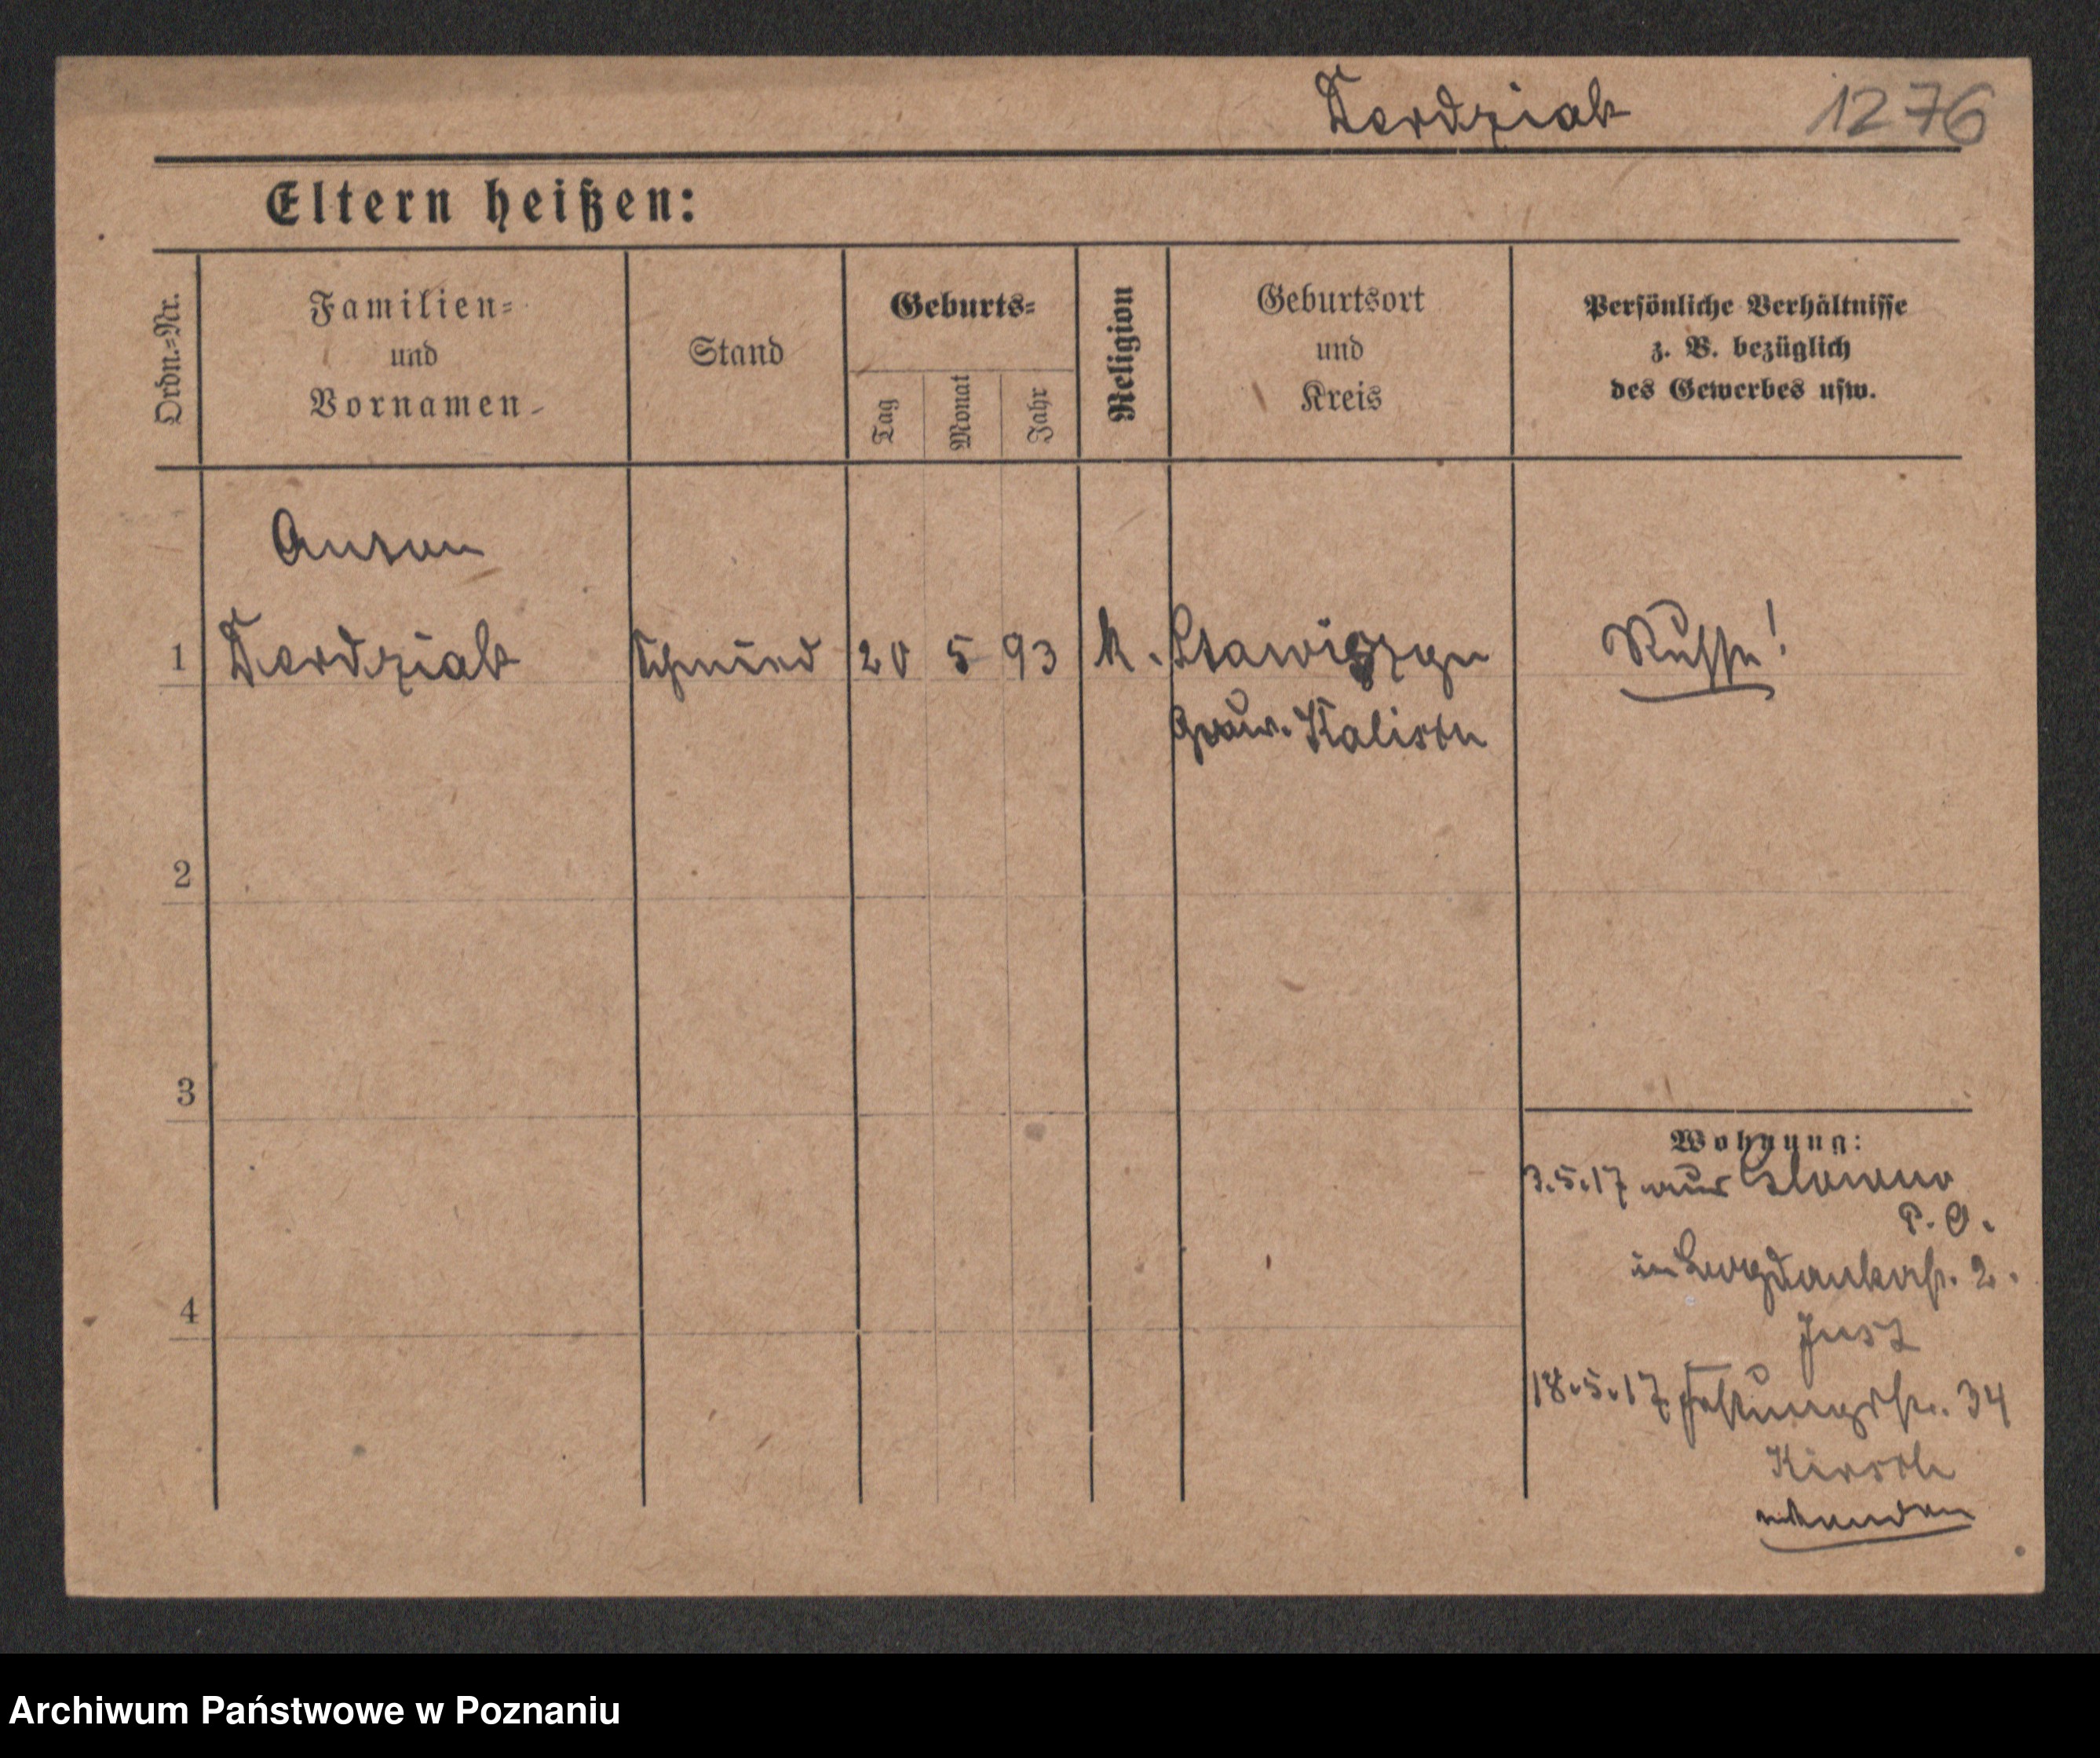 Terdziak 1276
Eltern heißen:
Ordn.=Nr.
Familien=
und
Vornamen
Stand
Geburts=
Tag
Monat
Jahr
Religion
Geburtsort
und
Kreis
Persönliche Verhältnisse
z. B. bezüglich
des Gewerbes usw.
Anton
1 Terdziak Schmied 20 5 93 k. Stawiszyn Russe!
Gouv. Kalisch
2
3
4
Wohnung:
3.5.17 aus
P. O.
in Bogdankastr. 2.
Just
18.5.17 Festungsstr. 34
Kirsch
Archiwum Państwowe w Poznaniu